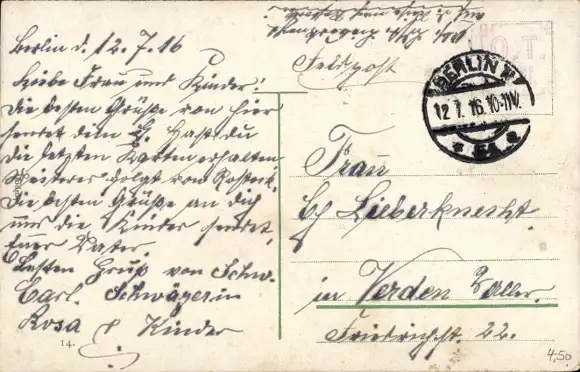 Berlin d. 12.7.16
Liebe Frau und Kinder!
Die besten Grüße von hier
sendet dein G. Hast du
die letzten Karten erhalten
Weiteres folgt von Rostock.
Die besten Grüße an dich
und die Kinder sendet
Euer Vater.
Besten Gruß von Schw.
Carl. Schwägerin
Rosa & Kinder
14.
Feldpost
O.T.
BERLIN N
12.7.16.10-11V.
* 54 a
Frau
Lieberknecht.
in Verden Aller.
Friedrichst. 22.
4,50